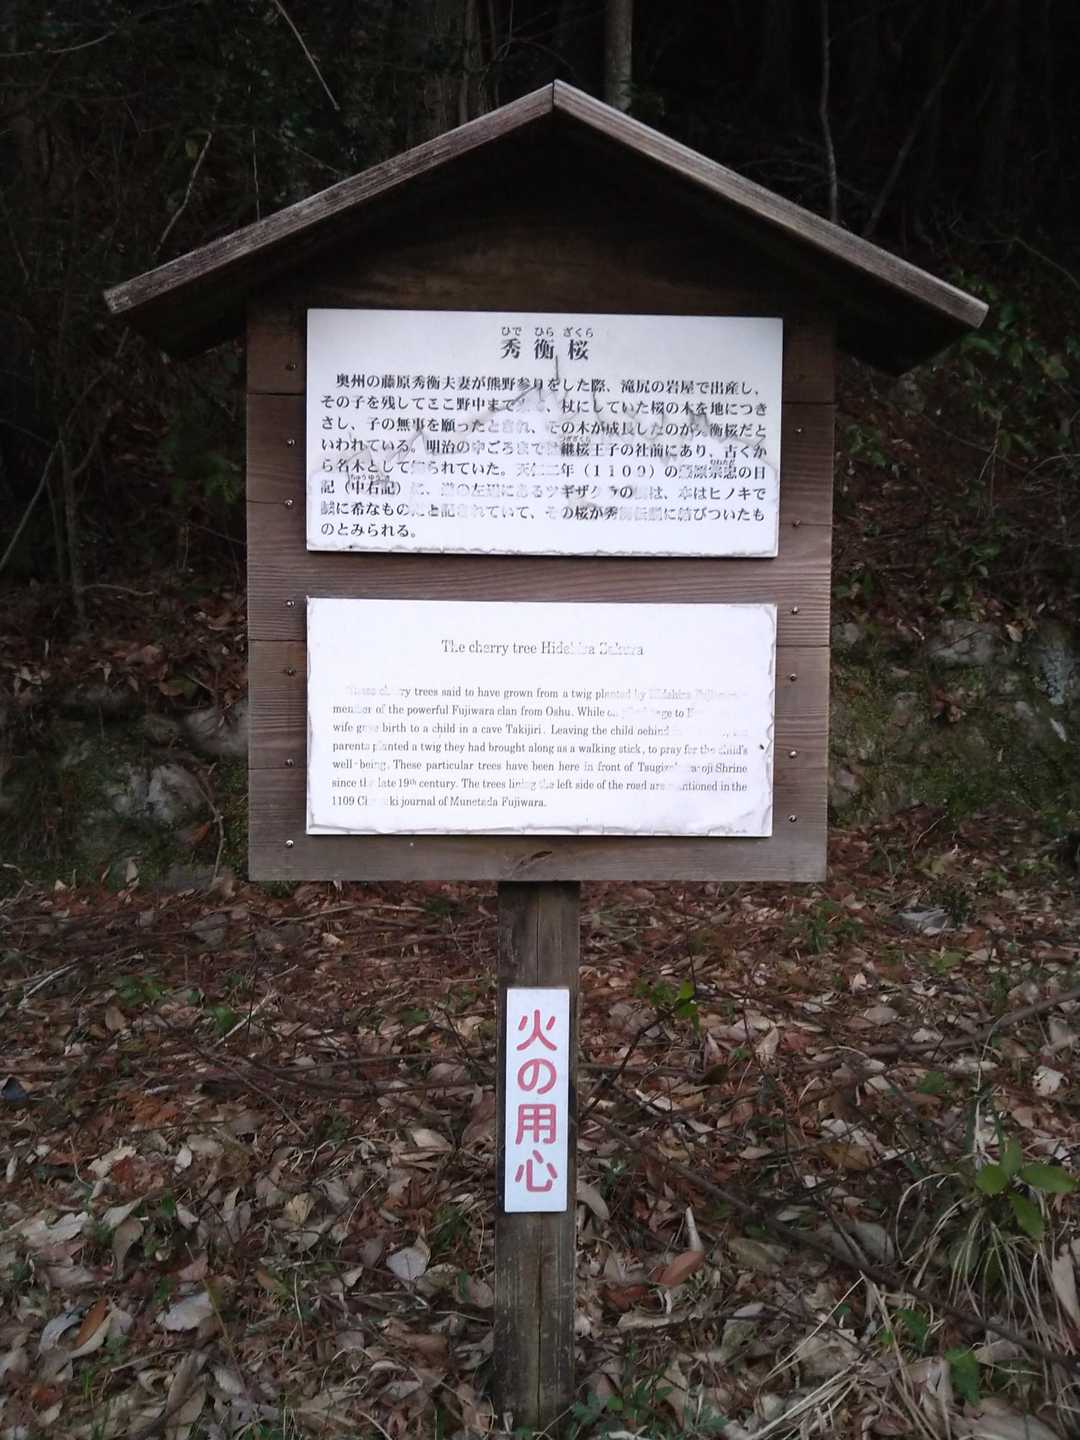 ひで ひら ざくら
秀衡桜
奥州の藤原秀衡夫妻が熊野参りをした際、滝尻の岩屋で出産し、
その子を残してここ野中まで、杖にしていた桜の木を地につき
さし、子の無事を願ったとされ、その木が成長したのが秀衡桜だと
つぎざくら
いわれている。明治の中ごろまで継桜王子の社前にあり、古くか
むねただ
ら名木として知られていた。天仁二年（１１０９）の藤原宗忠の日
ちゅうゆうき
記（中右記）に、道の左辺にあるツギザクラの樹は、本はヒノキで
誠に希なものだと記されていて、その桜が秀衡伝説に結びついたも
のとみられる。
The cherry tree Hidehira Zakura
These cherry trees said to have grown from a twig planted by Hidehira Fujiwara,
member of the powerful Fujiwara clan from Oshu. While on pilgrimage to
wife gave birth to a child in a cave Takijiri. Leaving the child behind
parents planted a twig they had brought along as a walking stick, to pray for the child's
well-being. These particular trees have been here in front of Tsugizakura-oji Shrine
since the late 19th century. The trees lining the left side of the road are mentioned in the
1109 journal of Munetada Fujiwara.
火の用心